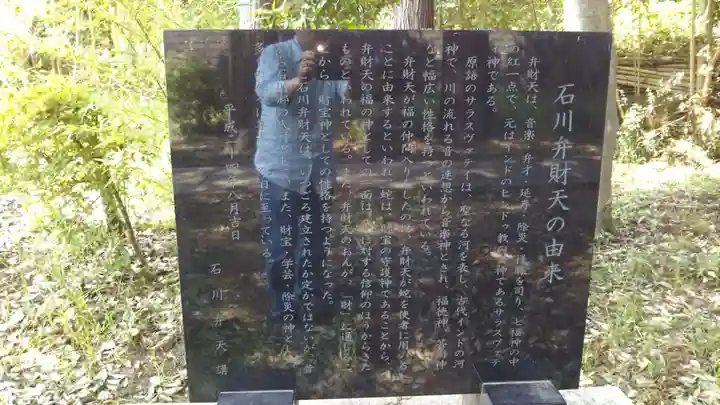 石川弁財天の由来
弁財天は、音楽・弁才・延寿・除災・得勝を司り、七福神の中
の紅一点で、元はインドのヒンドゥ教の神であるサラスヴァテ
神である。
原語のサラスヴァティは、聖なる河を表し、古代インドの河
神で、川の流れる音の連想から音楽神とされ、福徳神、芸の神
など幅広い性格を持つといわれている。
弁財天が福の仲間入りしたのは、弁財天が蛇を使者に用いる
ことに由来するといわれ、蛇は、財宝の守護神であることから、
弁財天の福の神としての一面は、する信仰のほうからきた
ものといわれている。また、弁財天のおんが、「財」に通じ
から、財宝神としての性格を持つようになった。
石川弁財天は、いつごろ建立されたか定かではないが、音
また、財宝・学芸・除災の神とし
多 日に至っている。
平成二十四年八月吉日
石川弁天講